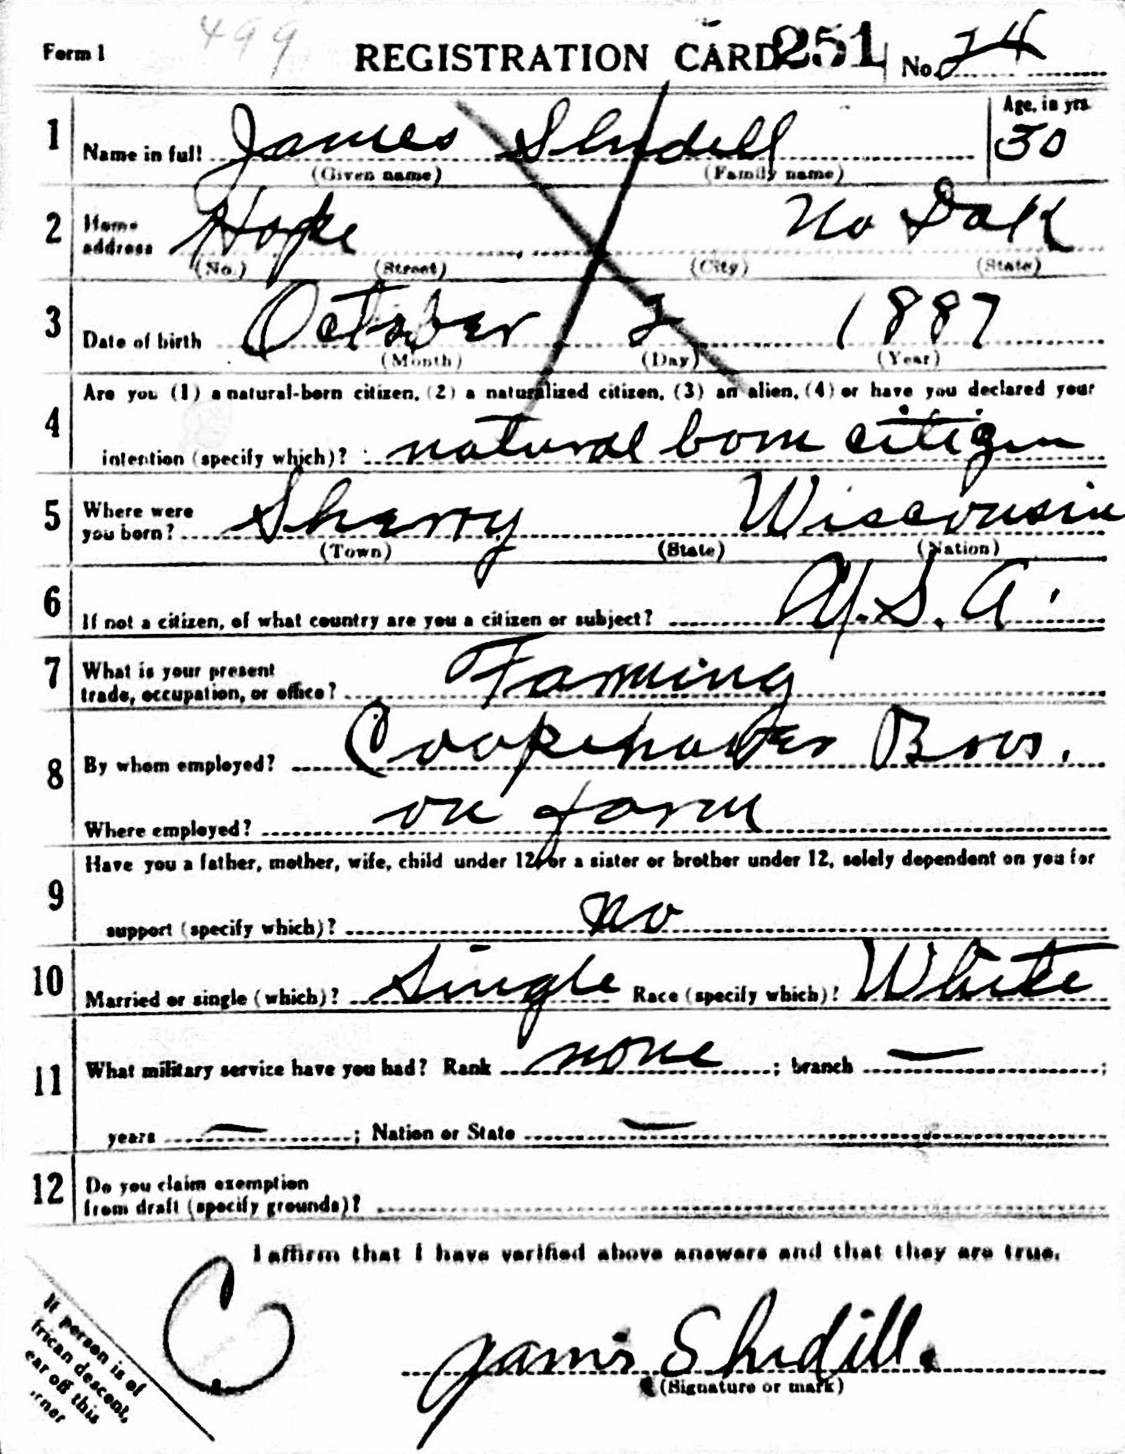 499
Form 1 REGISTRATION CARD 251 No. 24
1 Name in full James Shidell Age, in yrs. 30
(Given name) (Family name)
2 Home address Hope No Dak
(No.) (Street) (City) (State)
3 Date of birth October 2 1887
(Month) (Day) (Year)
Are you (1) a natural-born citizen, (2) a naturalized citizen, (3) an alien, (4) or have you declared your
4 intention (specify which)? natural born citizen
5 Where were you born? Sherry Wisconsin
(Town) (State) (Nation)
6 If not a citizen, of what country are you a citizen or subject? U.S.A.
7 What is your present
trade, occupation, or office? Farming
8 By whom employed? Bros.
Where employed? on farm
Have you a father, mother, wife, child under 12, or a sister or brother under 12, solely dependent on you for
9 support (specify which)? no
10 Married or single (which)? Single Race (specify which)? White
11 What military service have you had? Rank none ; branch — ;
years — ; Nation or State —
12 Do you claim exemption
from draft (specify grounds)?
I affirm that I have verified above answers and that they are true.
C
James Shidill.
(Signature or mark)
If person is of
frican descent,
ear off this
rner